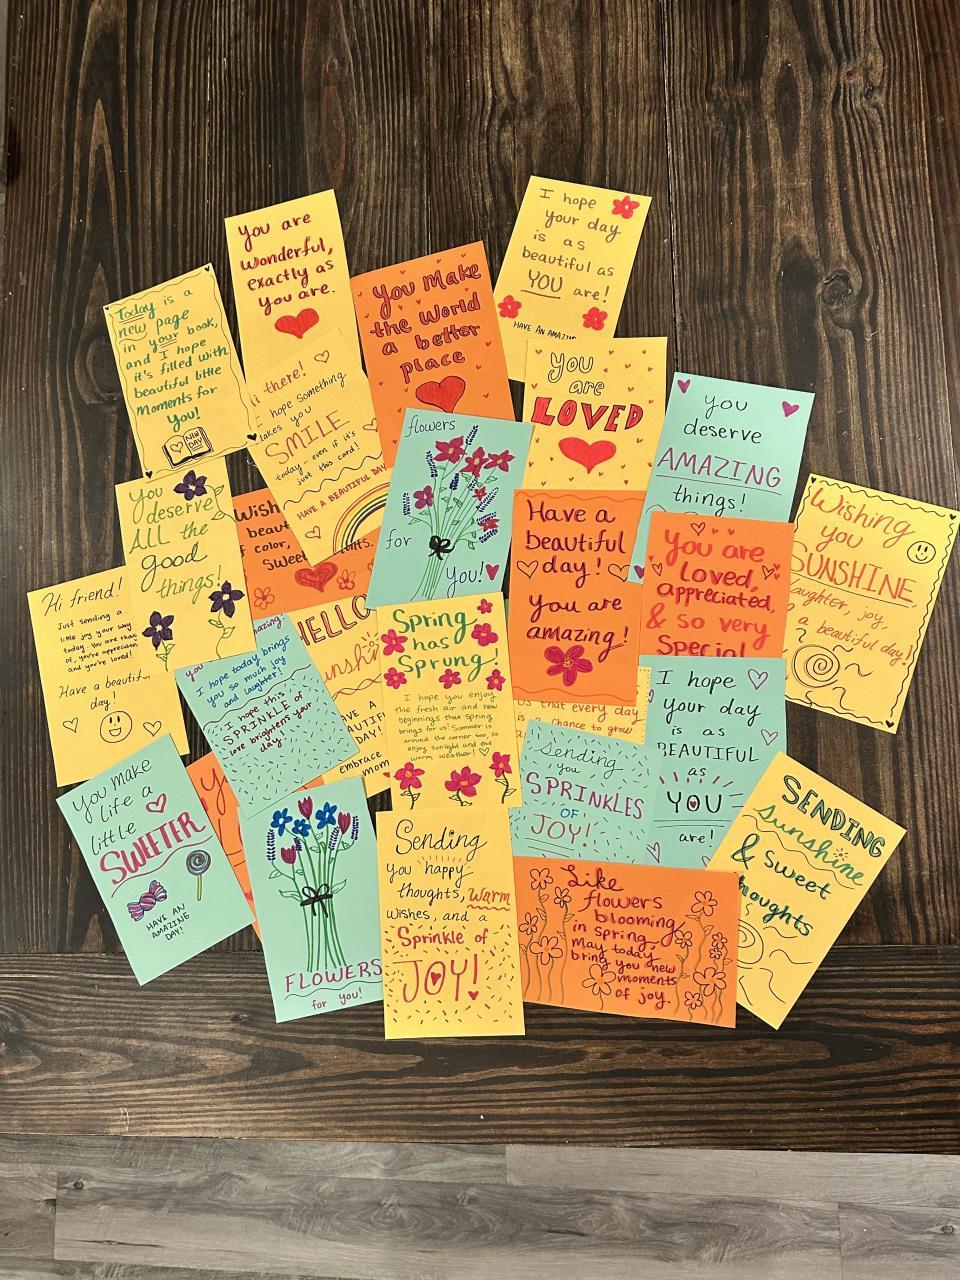 Today is a
new page
in your book,
and I hope
it's filled with
beautiful little
moments for
you!
NEW
DAY
You are
wonderful,
exactly as
you are.
You make
the world
a better
place
I hope
your day
is as
beautiful as
YOU are!
HAVE AN AMAZING
there!
hope something
makes you
SMILE
today even if it's
just this card!
HAVE A BEAUTIFUL DAY
flowers
for
you!
You
are
LOVED
you
deserve
AMAZING
things!
Wishing
you
SUNSHINE,
laughter, joy,
& a beautiful day!
You
deserve
All the
good
things!
Wish
beaut
of color,
sweet
Have a
beautiful
day!
You are
amazing!
You are
loved,
appreciated,
& so very
special
Hi friend!
Just sending a
little joy your way
today. You are that
of, you're appreciat
and you're loved!
Have a beautiful
day!
you
amazing!
I hope today brings
you so much joy
and laughter!
I hope this
SPRINKLE of
love brightens your
day!
HELLO
unshin
HAVE A
BEAUTIF
DAY!
embrace
mom
Spring
has
Sprung!
I hope you enjoy
the fresh air and new
beginnings that Spring
brings for us! Summer is
around the corner too, so
enjoy sunlight and the
warm weather!
us that every day
a chance to grow
Sending
you
SPRINKLES
OF
JOY!
I hope
your day
is as
BEAUTIFUL
as
YOU
are!
You make
life a
little
SWEETER
HAVE AN
AMAZING
DAY!
FLOWERS
for you!
Sending
you happy
thoughts, warm
wishes, and a
Sprinkle of
JOY!
Like
flowers
blooming
in spring,
may today
bring you new
moments
of joy.
SENDING
sunshine
& sweet
thoughts